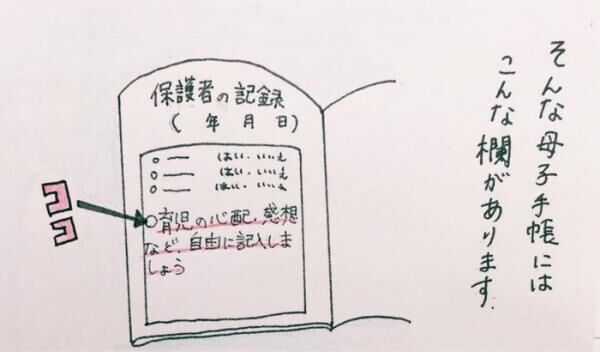 そんな母子手帳には
こんな欄があります.
保護者の記録
( 年 月 日)
○ー はい.いいえ
○ー はい.いいえ
○ー はい.いいえ
ココ
○育児の心配、感想
など、自由に記入しま
しょう